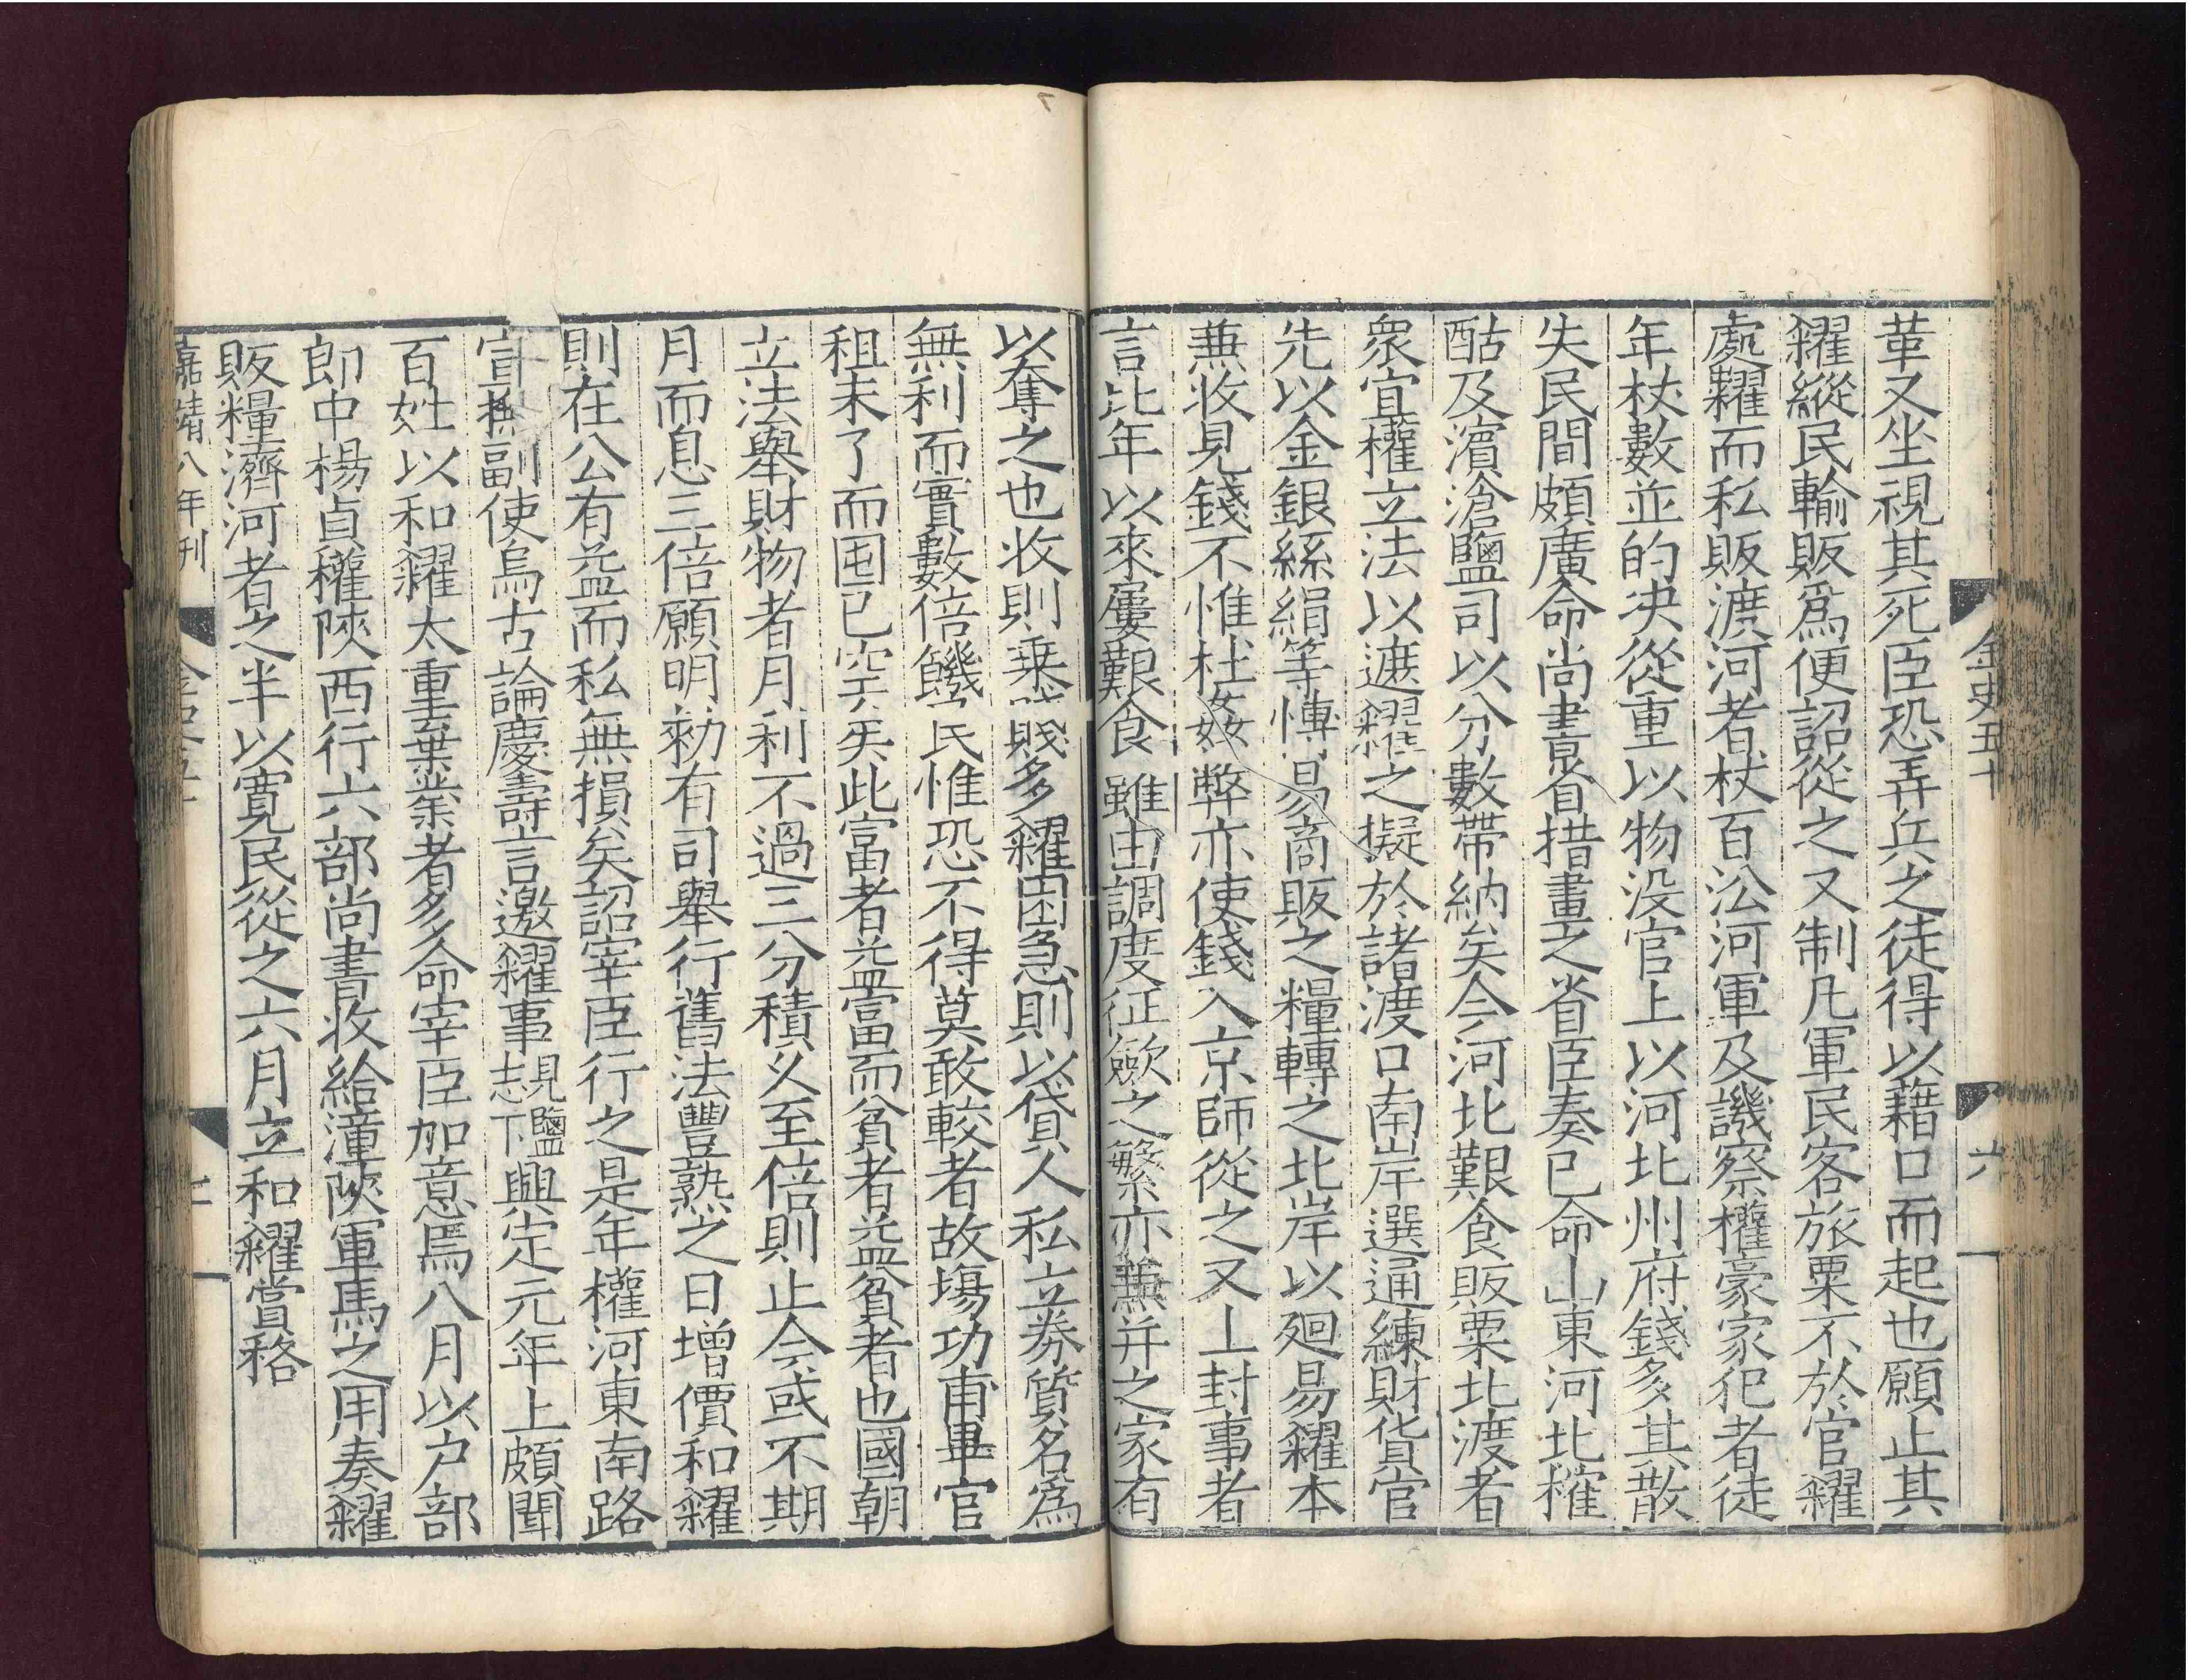 革又坐視其死臣恐弄兵之徒得以藉口而起也願止其
糴縱民輸販爲便詔從之又制凡軍民客旅粟不於官糴
處糶而私販渡河者杖百沿河軍及譏察權豪家犯者徒
年杖數並的决從重以物没官上以河北州府錢多其散
失民間頗廣命尚書省措畫之省臣奏已命山東河北榷
酤及濱滄鹽司以分數帶納矣今河北艱食販粟北渡者
衆宜權立法以遮糴之擬於諸渡口南岸選通練財貨官
先以金銀絲絹等博易商販之糧轉之北岸以廻易糴本
兼收見錢不惟杜姦弊亦使錢入京師從之又上封事者
言比年以來屢艱食雖由調度征斂之繁亦兼并之家有
金史五十
六
以奪之也收則乗賤多糴困急則以貸人私立劵質名爲
無利而實數倍饑民惟恐不得莫敢較者故塲功甫畢官
租未了而囤已空矣此富者益富而貧者益貧者也國朝
立法舉財物者月利不過三分積久至倍則止今或不期
月而息三倍願明勑有司舉行舊法豐熟之日增價和糴
則在公有益而私無損矣詔宰臣行之是年權河東南路
宣撫副使烏古論慶壽言邀糴事見鹽志下興定元年上頗聞
百姓以和糴太重棄業者多命宰臣加意焉八月以户部
郎中楊貞權陝西行六部尚書收給潼陝軍馬之用奏糴
販糧濟河者之半以寛民從之六月立和糴賞格
嘉靖八年刊